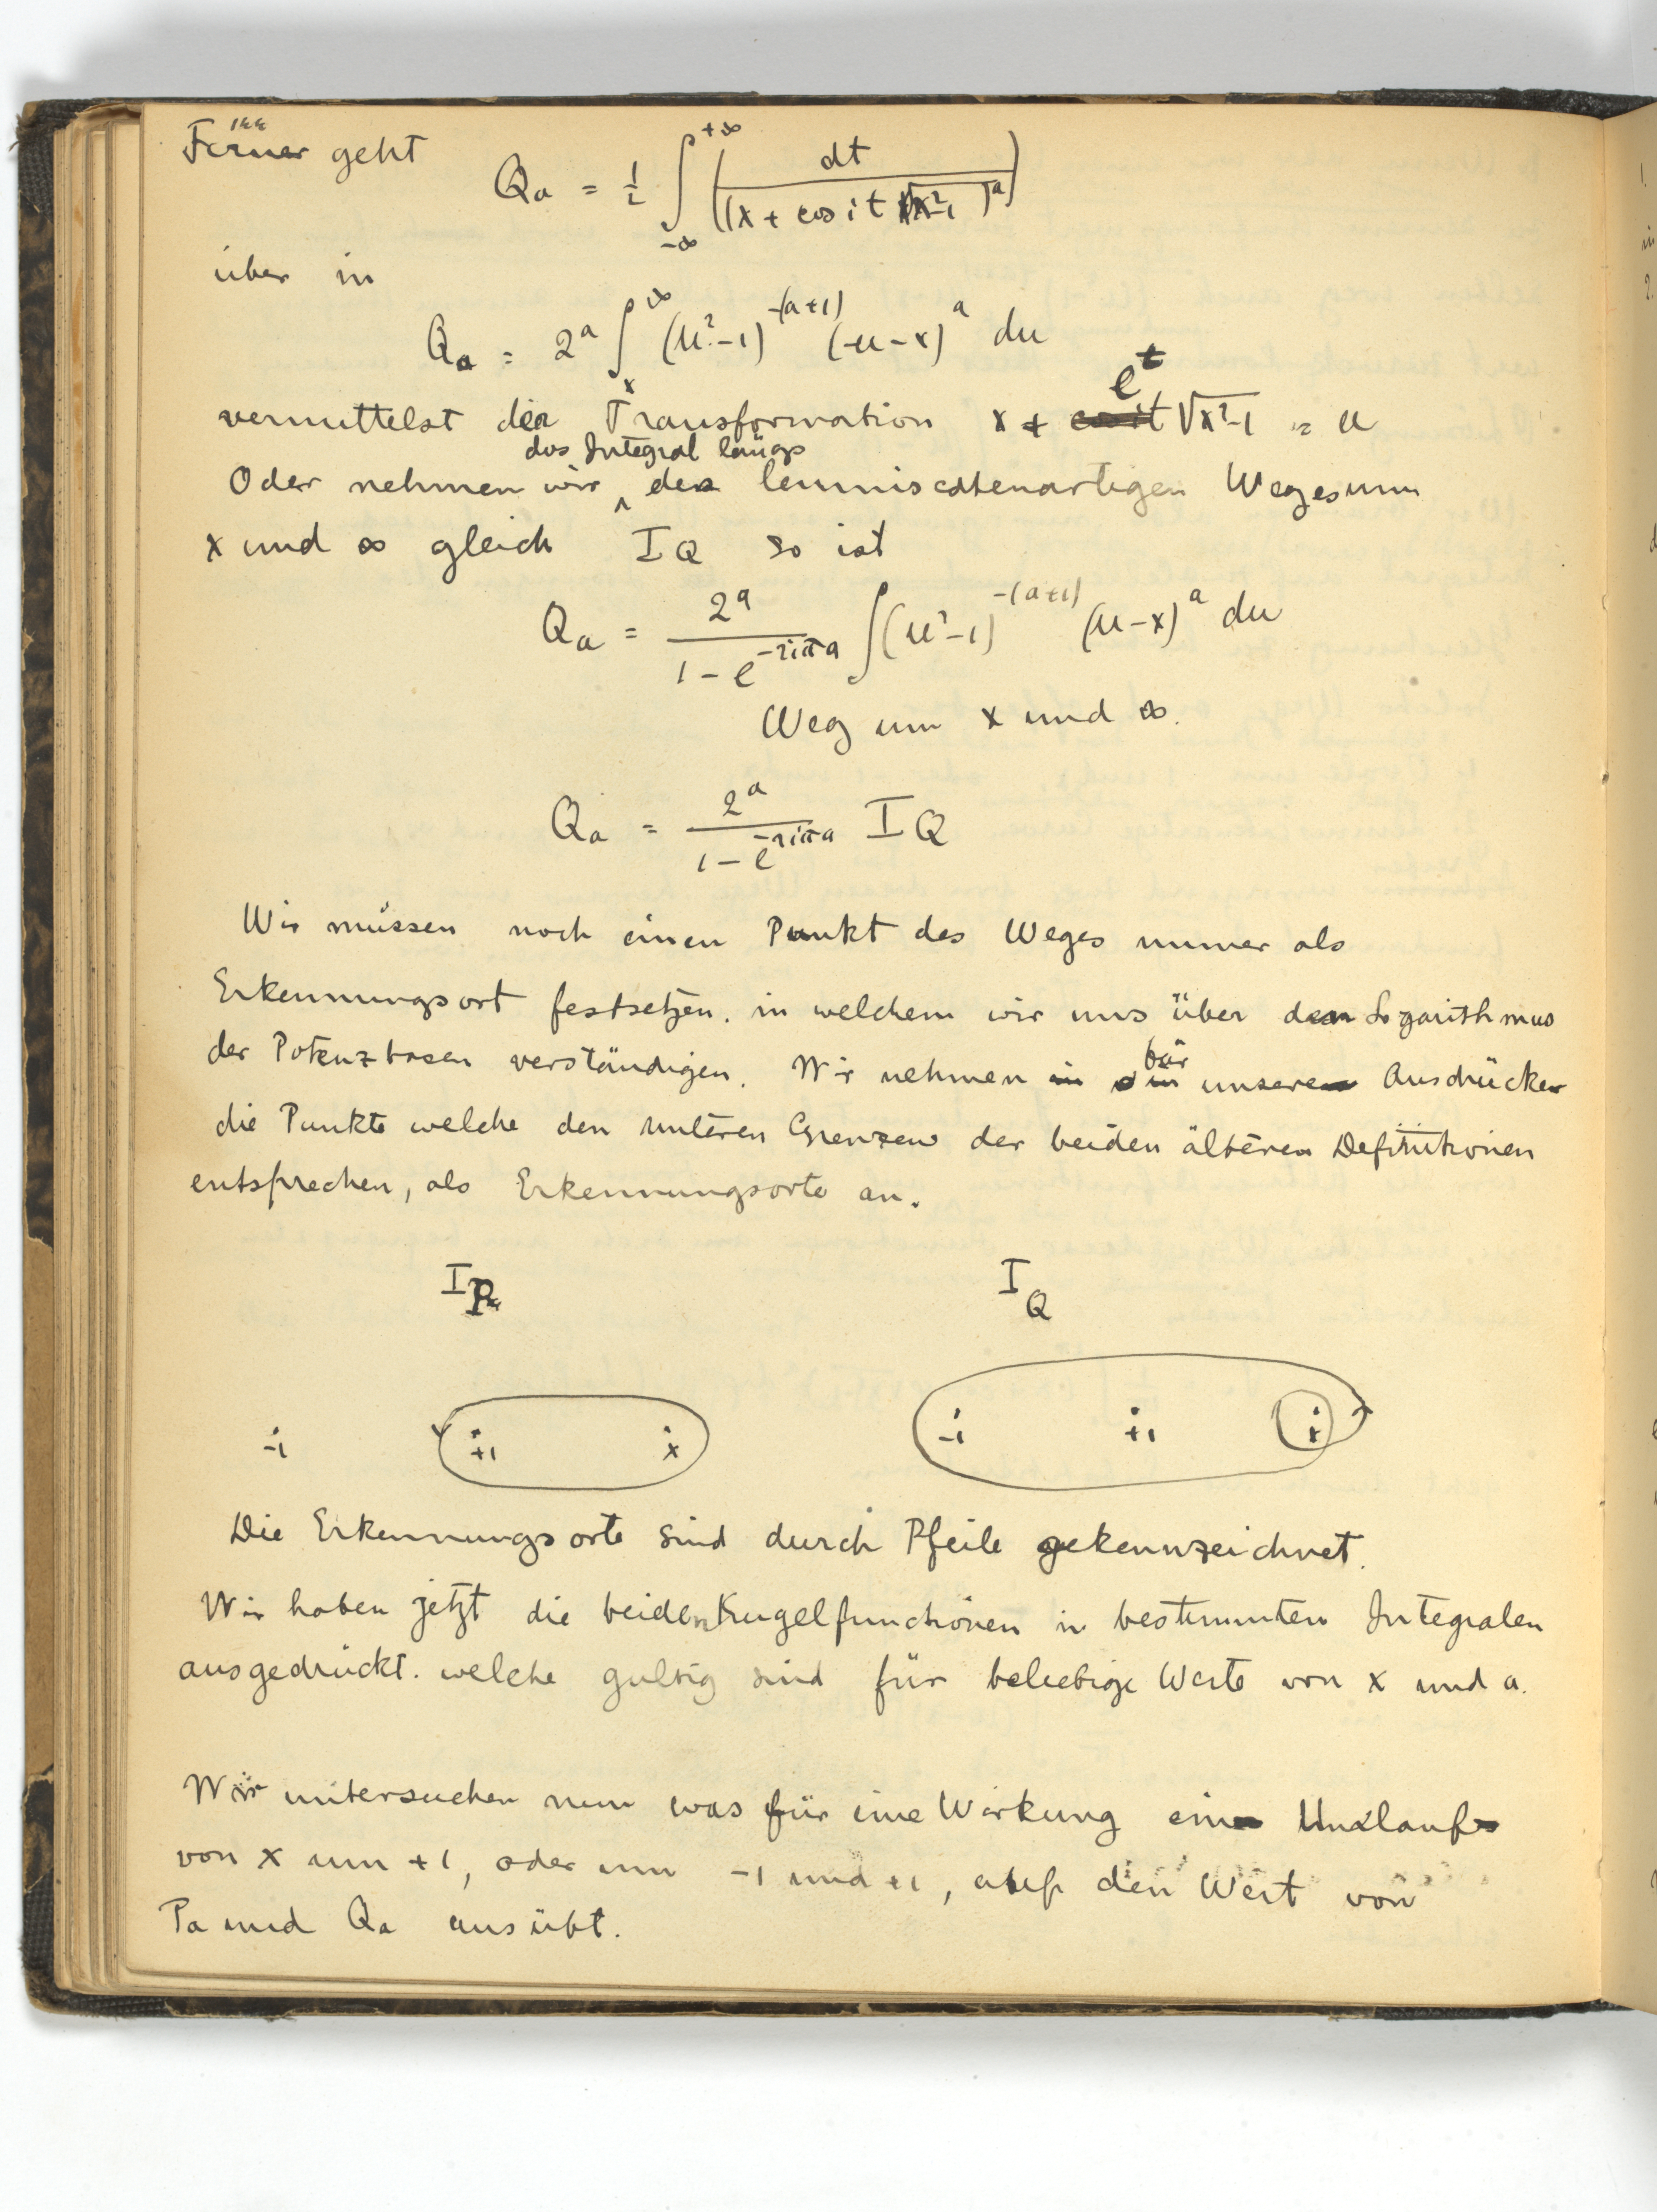 Ferner geht
Q_a = 1/2 ∫_{-∞}^{+∞} (dt / (x + cos i t √x²-1)^a)
über in
Q_a = 2^a ∫_x^∞ (u²-1)^{-(a+1)} (u-x)^a du
vermittelst der Transformation x + e^t √x²-1 = u
das Integral längs
Oder nehmen wir des lemniscatenartigen Weges um
x und ∞ gleich I Q so ist
Q_a = 2^a / (1 - e^{-2iπa}) ∫ (u²-1)^{-(a+1)} (u-x)^a du
Weg um x und ∞.
Q_a = 2^a / (1 - e^{-2iπa}) I Q
Wir müssen noch einen Punkt des Weges immer als
Erkennungsort festsetzen. in welchem wir uns über den Logarithmus
der Potenzbasen verständigen. Wir nehmen für unsere Ausdrücke
die Punkte welche den unteren Grenzen der beiden älteren Definitionen
entsprechen, als Erkennungsorte an.
I_P I_Q
-1 +1 x -1 +1 x
Die Erkennungsorte sind durch Pfeile gekennzeichnet.
Wir haben jetzt die beiden Kugelfunctionen in bestimmten Integralen
ausgedrückt. welche gültig sind für beliebige Werte von x und a.
Wir untersuchen nun was für eine Wirkung ein Umlauf
von x um +1, oder um -1 und +1, auf den Wert von
P_a und Q_a ausübt.